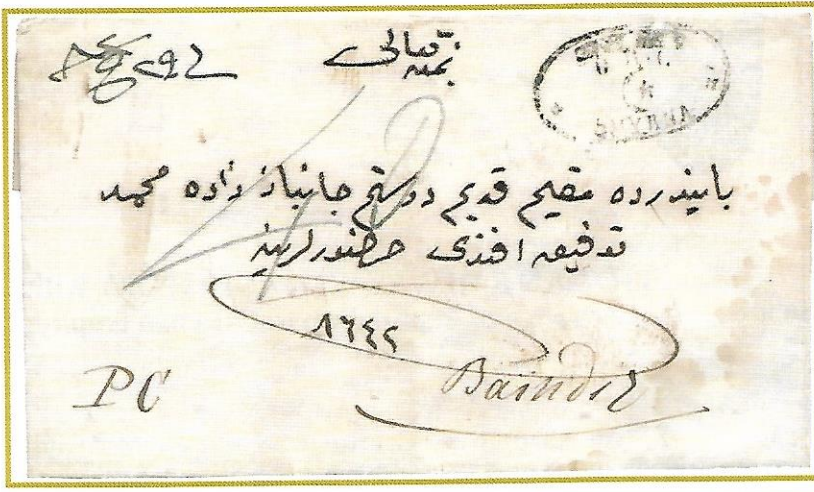 بمنه تعالى
SMYRNA
بايندرده مقيم قديم دوستم جانباز زاده محمد
توفيق افندى حضورلرينه
٨٦٤٢
PC
Baindir